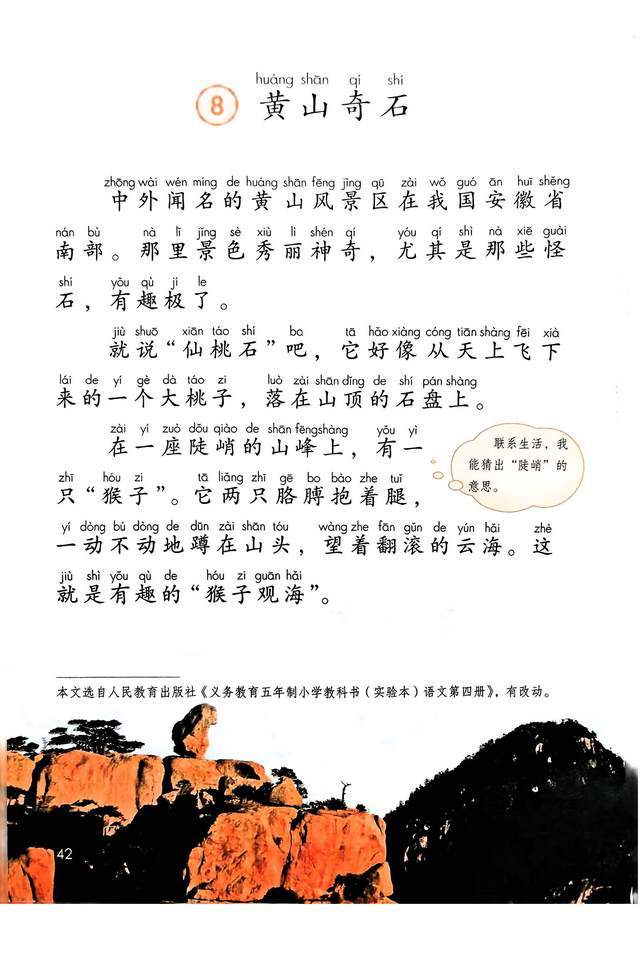 huáng shān qí shí
8 黄山奇石
zhōng wài wén míng de huáng shān fēng jǐng qū zài wǒ guó ān huī shěng
中外闻名的黄山风景区在我国安徽省
nán bù nà lǐ jǐng sè xiù lì shén qí yóu qí shì nà xiē guài
南部。那里景色秀丽神奇，尤其是那些怪
shí yǒu qù jí le
石，有趣极了。
jiù shuō xiān táo shí ba tā hǎo xiàng cóng tiān shàng fēi xià
就说“仙桃石”吧，它好像从天上飞下
lái de yí gè dà táo zi luò zài shān dǐng de shí pán shàng
来的一个大桃子，落在山顶的石盘上。
zài yí zuò dǒu qiào de shān fēng shàng yǒu yì
在一座陡峭的山峰上，有一
zhī hóu zi tā liǎng zhī gē bo bào zhe tuǐ
只“猴子”。它两只胳膊抱着腿，
yí dòng bú dòng de dūn zài shān tóu wàng zhe fān gǔn de yún hǎi zhè
一动不动地蹲在山头，望着翻滚的云海。这
jiù shì yǒu qù de hóu zi guān hǎi
就是有趣的“猴子观海”。
联系生活，我
能猜出“陡峭”的
意思。
本文选自人民教育出版社《义务教育五年制小学教科书（实验本）语文第四册》，有改动。
42